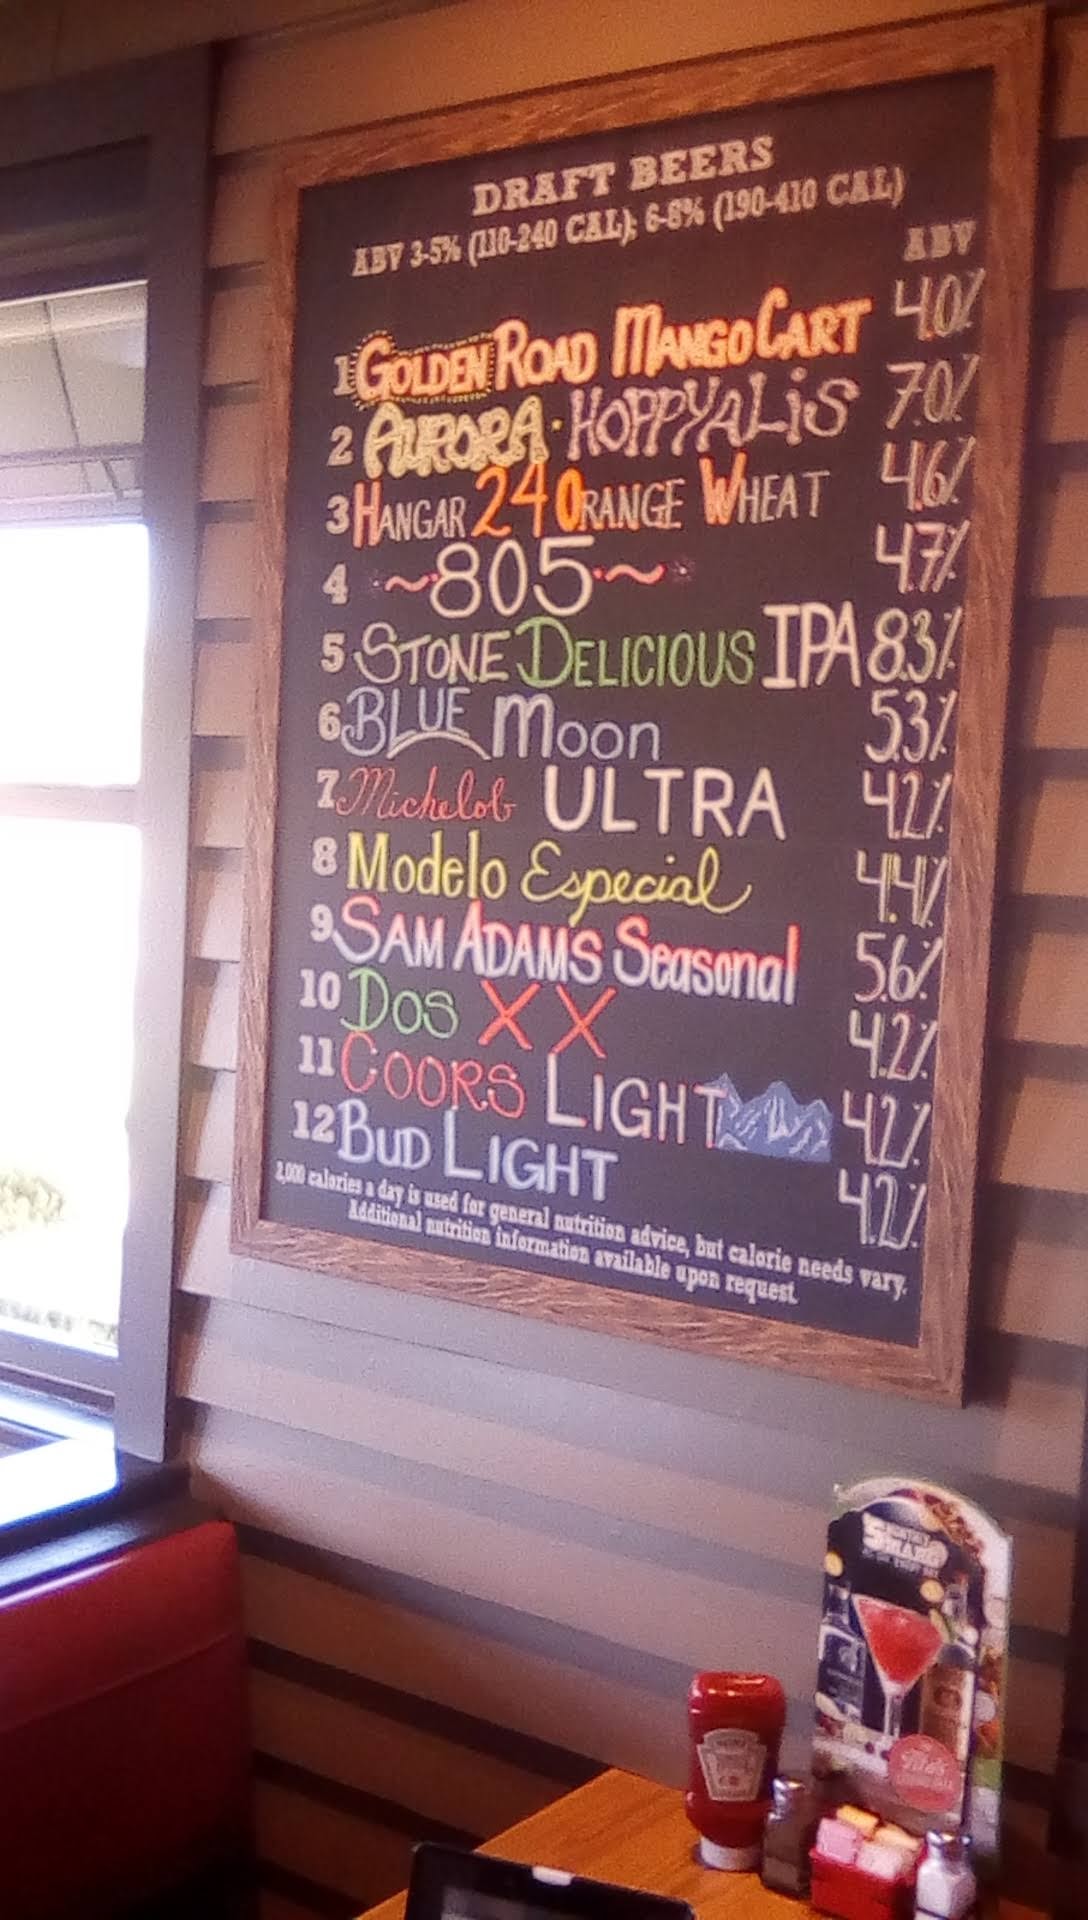 DRAFT BEERS
ABV 3-5% (110-240 CAL); 6-8% (190-410 CAL)
ABV
1 GOLDEN ROAD MANGO CART 4.0%
2 AURORA · HOPPYALiS 7.0%
3 HANGAR 24 ORANGE WHEAT 4.6%
4 ~805~ 4.7%
5 STONE DELICIOUS IPA 8.3%
6 BLUE Moon 5.3%
7 Michelob ULTRA 4.2%
8 Modelo Especial 4.4%
9 SAM ADAMS Seasonal 5.6%
10 DOS XX 4.2%
11 COORS LIGHT 4.2%
12 BUD LIGHT 4.2%
2,000 calories a day is used for general nutrition advice, but calorie needs vary.
Additional nutrition information available upon request.
HEINZ